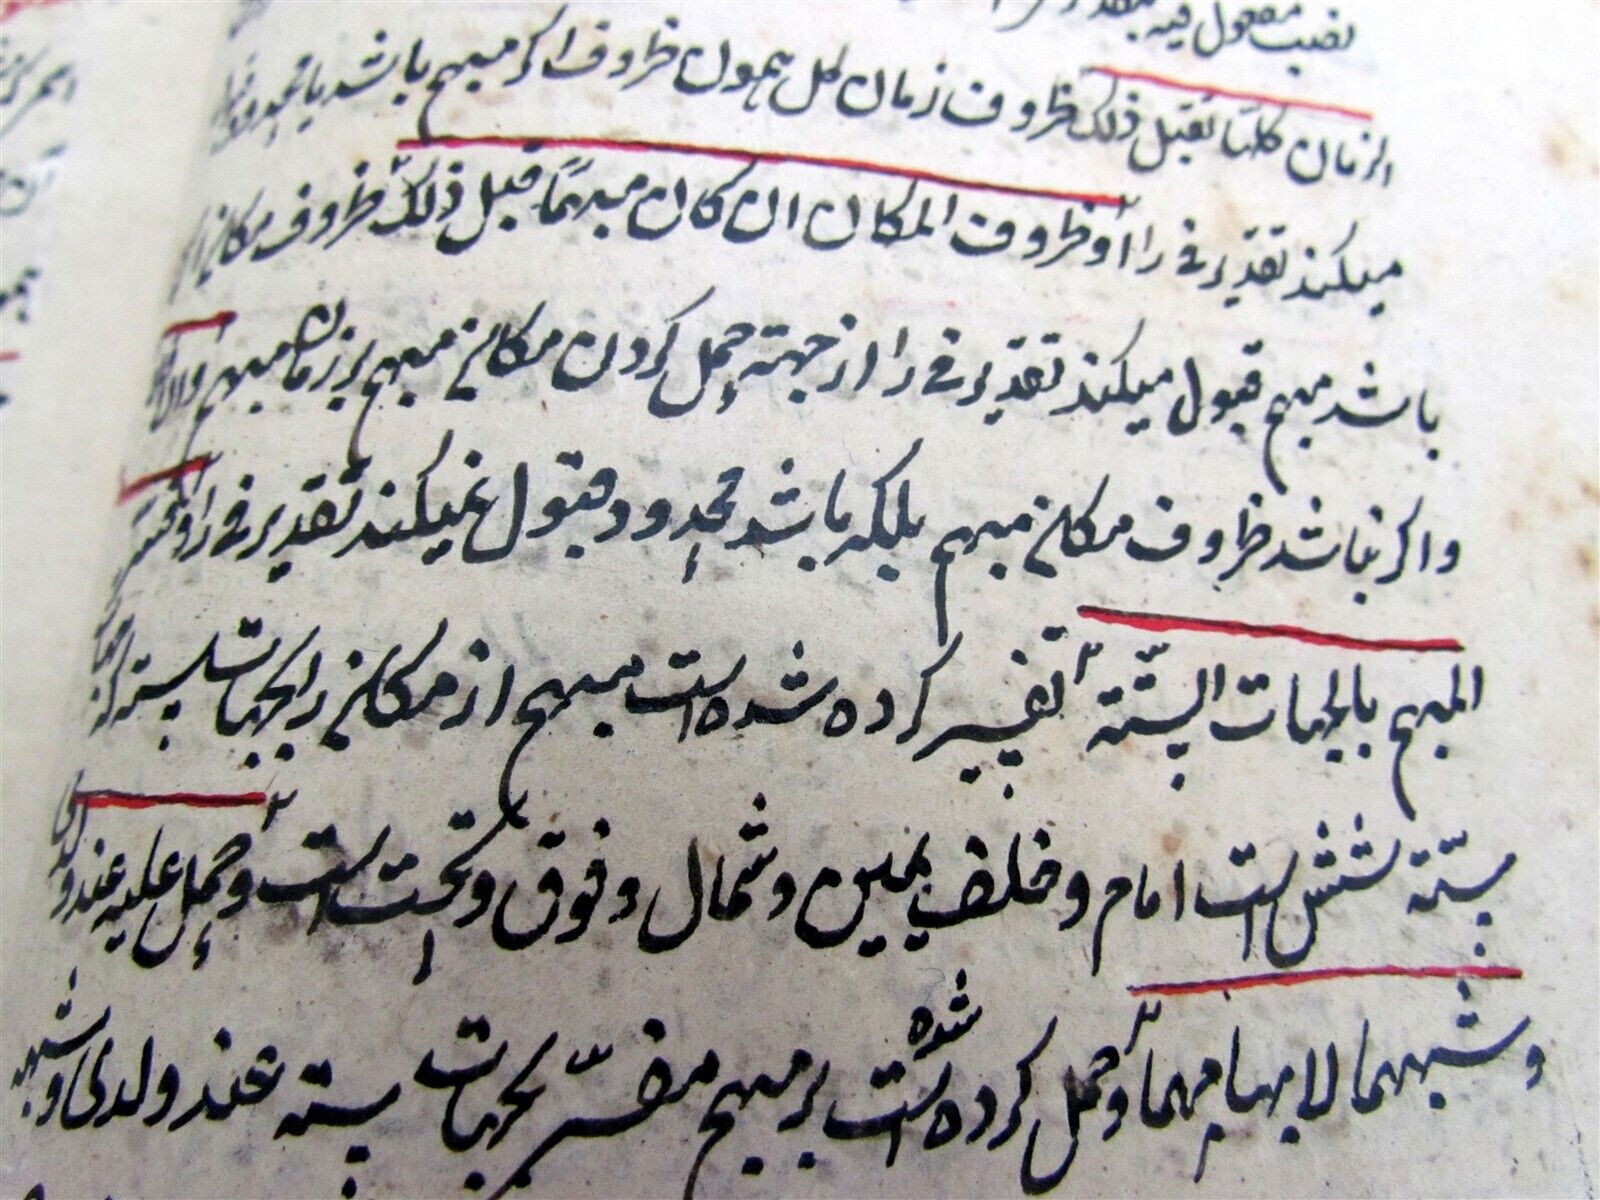 نصب مفعول فیه
الزمان كلها تقبل ذلك ظروف زمان کل همون ظروف اکر مبهم باشد یا محدود
میکند تقدیر فی را و ظروف المکان ان کان مبهما قبل ذلک ظروف مکان
باشد مبهم قبول میکند تقدیر فی را از جهته حمل کردن مکانی مبهم بر زمان مبهم والا
واکر نباشد ظروف مکانی مبهم بلکه باشد محدود قبول نمیکند تقدیر فی را وفسر
المبهم بالجهات الستة تفسیر کرده شده است مبهم از مکانی را بجهات سته که
ستة شش است امام و خلف یمین و شمال و فوق و تحت است و حمل علیه عند ولدی
و شبههما لابهامهما و حمل کرده شده است بر مبهم مفسّر بجهات سته عند ولدی و شبه